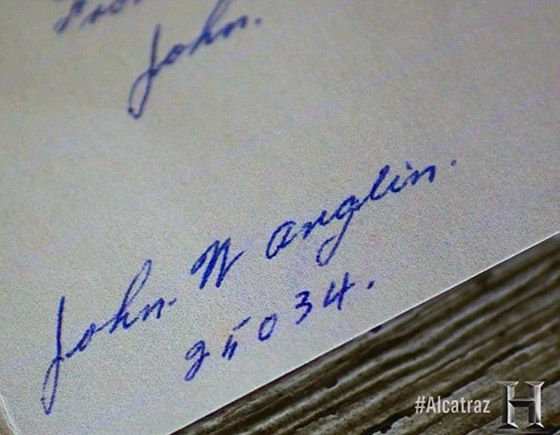 John.
John. W Anglin.
25034.
#Alcatraz H